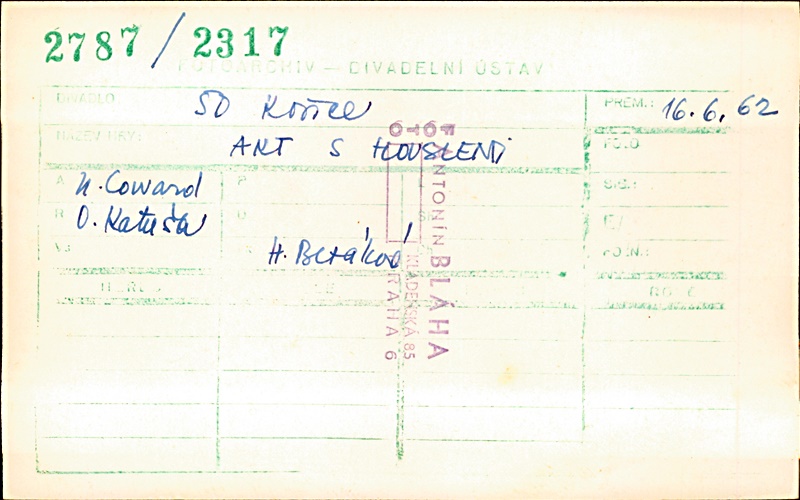 2787 / 2317
FOTOARCHIV — DIVADELNÍ ÚSTAV
DIVADLO SD Košice PREM.: 16.6.62
NÁZEV HRY: AKT S HOUSLEMI FOTO
A N. Coward P
R O. Katuša
H. Beráková
FOTO
ANTONÍN BLÁHA
KLADENSKÁ 85
PRAHA 6